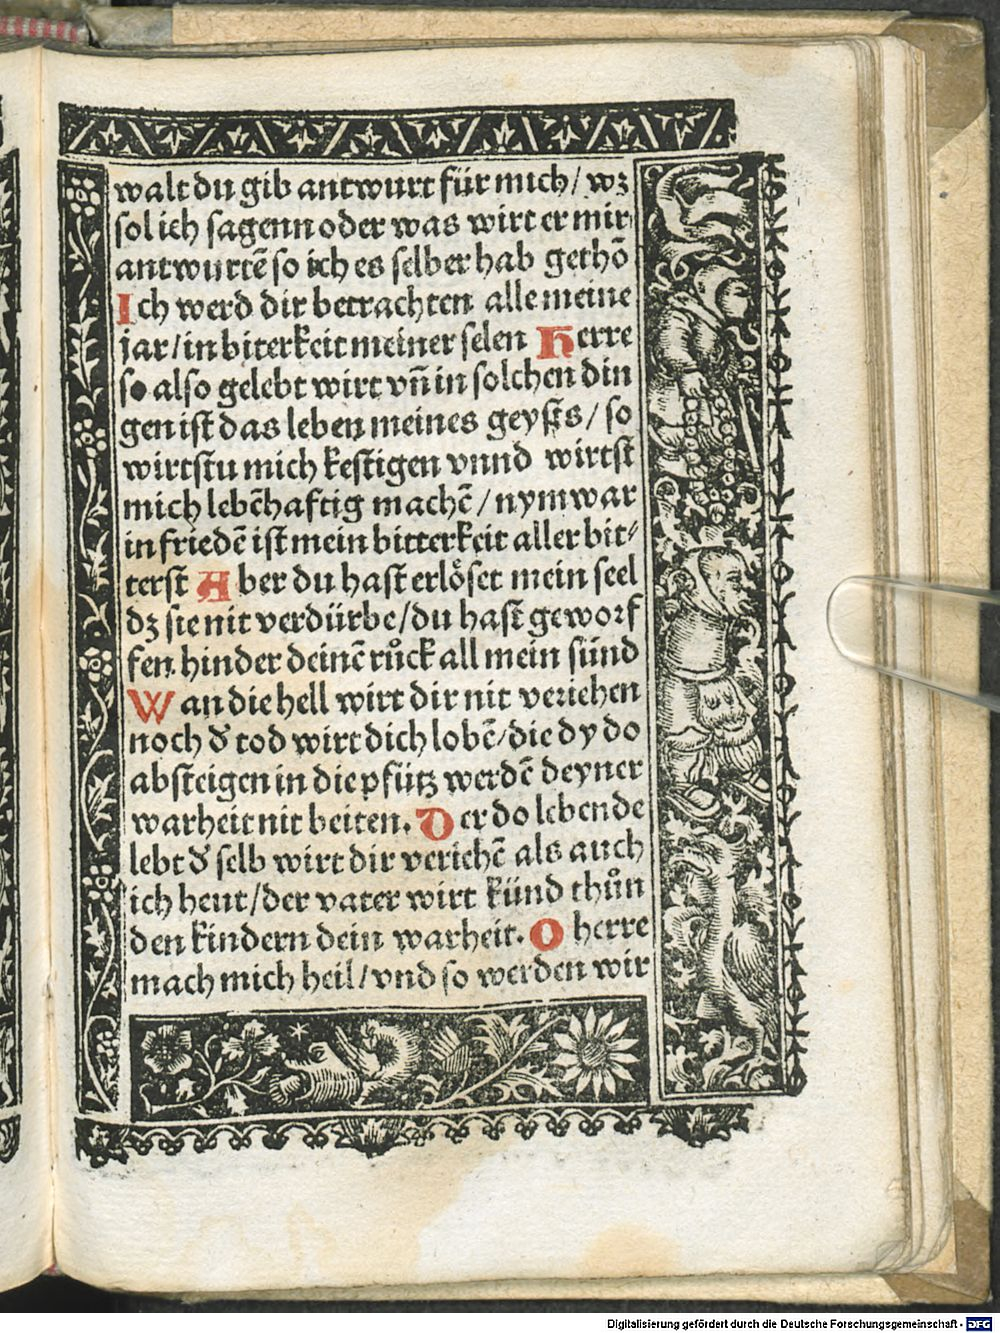 walt du gib antwurt für mich/ wz
sol ich sagenn oder was wirt er mir
antwurtē so ich es selber hab gethō
Ich werd dir betrachten alle meine
jar/in biterkeit meiner selen Herre
so also gelebt wirt vn̄ in solchen din
gen ist das leben meines geysts/ so
wirtstu mich kestigen vnnd wirtst
mich lebēhaftig machē/ nym war
in friedē ist mein bitterkeit aller bit⸗
terst Aber du hast erlöset mein seel
dz sie nit verdürbe/du hast geworf
fen hinder deinē růck all mein sünd
Wan die hell wirt dir nit veriehen
noch d̄ tod wirt dich lobē/die dy do
absteigen in die pfütz werdē deyner
warheit nit beiten. Der do lebende
lebt d̄ selb wirt dir veriehē als auch
ich heut/der vater wirt künd thůn
den kindern dein warheit. O herre
mach mich heil/vnd so werden wir
Digitalisierung gefördert durch die Deutsche Forschungsgemeinschaft - DFG